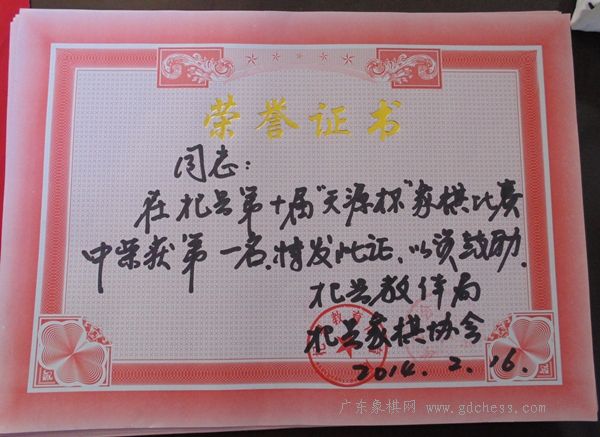 荣誉证书
同志:
在杞县第十届"天源杯"象棋比赛
中荣获第一名.特发此证、以资鼓励.
杞县教体局
杞县象棋协会
2014.2.16.
广东象棋网 www.gdchess.com